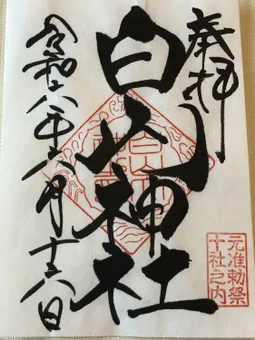 奉拝
白山神社
令和六年六月十六日
元准勅祭
十社之内